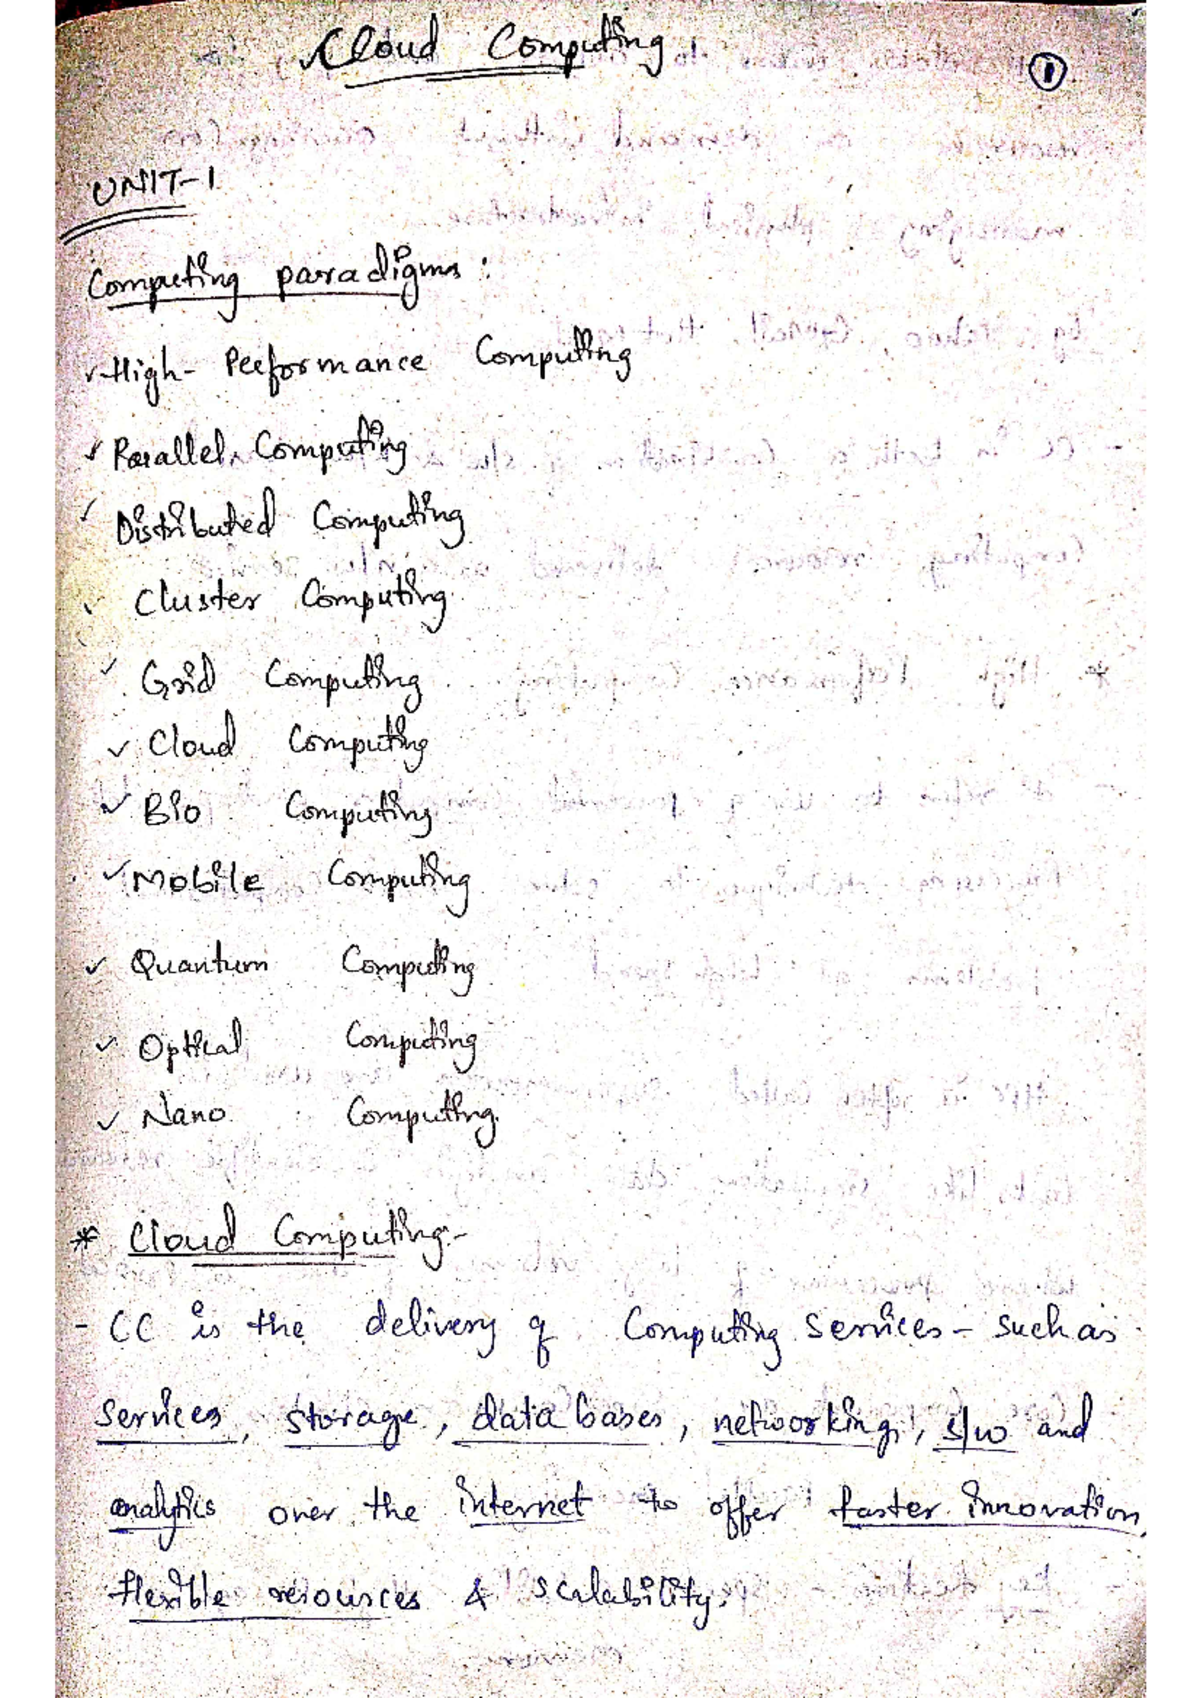 Cloud Computing
1
UNIT-1
Computing paradigms:
✓ High-Performance Computing
✓ Parallel Computing
✓ Distributed Computing
✓ Cluster Computing
✓ Grid Computing
✓ Cloud Computing
✓ Bio Computing
✓ Mobile Computing
✓ Quantum Computing
✓ Optical Computing
✓ Nano Computing
* Cloud Computing:-
- CC is the delivery of Computing Services - such as
Services, storage, data bases, networking, s/w and
analytics over the internet to offer faster Innovation,
flexible resources & scalability.